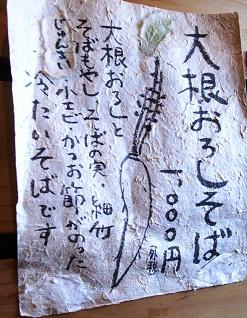 大根おろしそば
1,000円
大根おろしと
そばもやし・そばの実・細竹
じゅんさい・小エビ・かつお節がのった
冷たいそばです